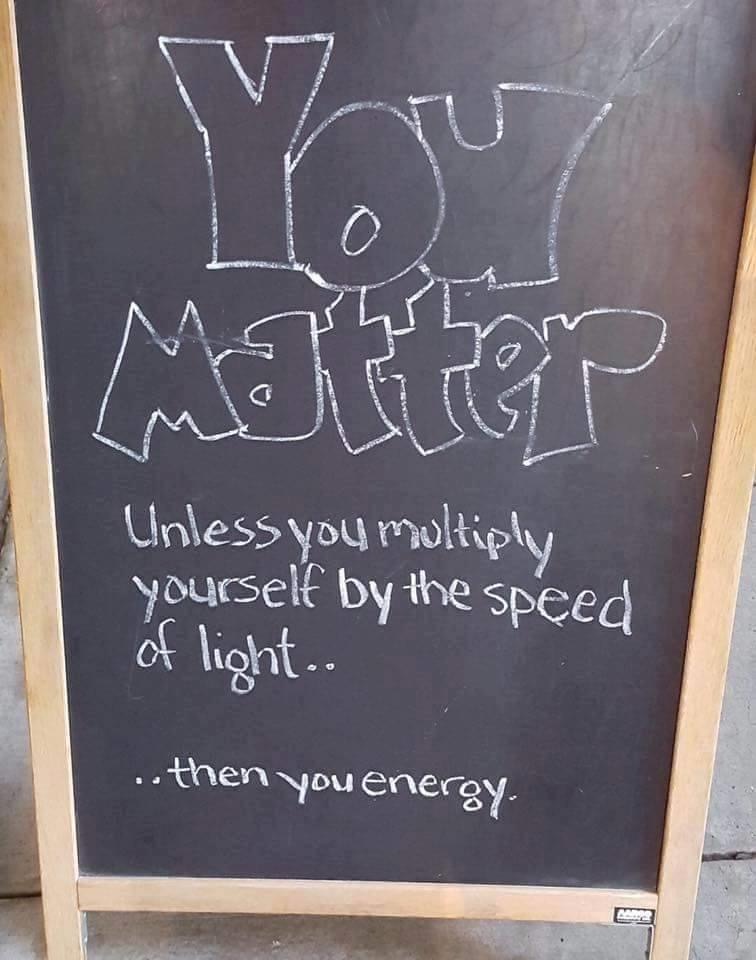 You
Matter
Unless you multiply
yourself by the speed
of light..
..then you energy.
AARCO